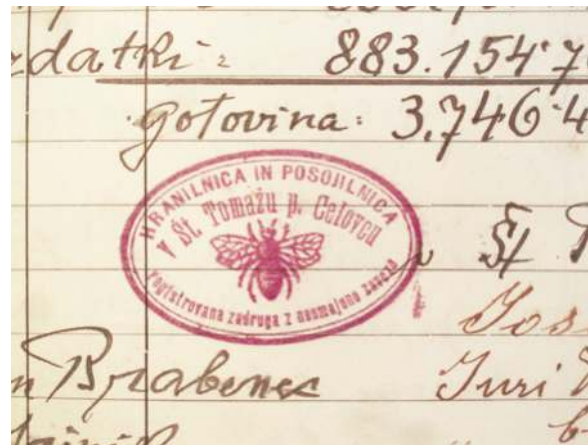 zdatki: 883.154.7
gotovina: 3.746.4
HRANILNICA IN POSOJILNICA
v Št. Tomažu p. Celovcu
registrovana zadruga z neomejeno zavezo
v Št
Jos
Brabenec Juri